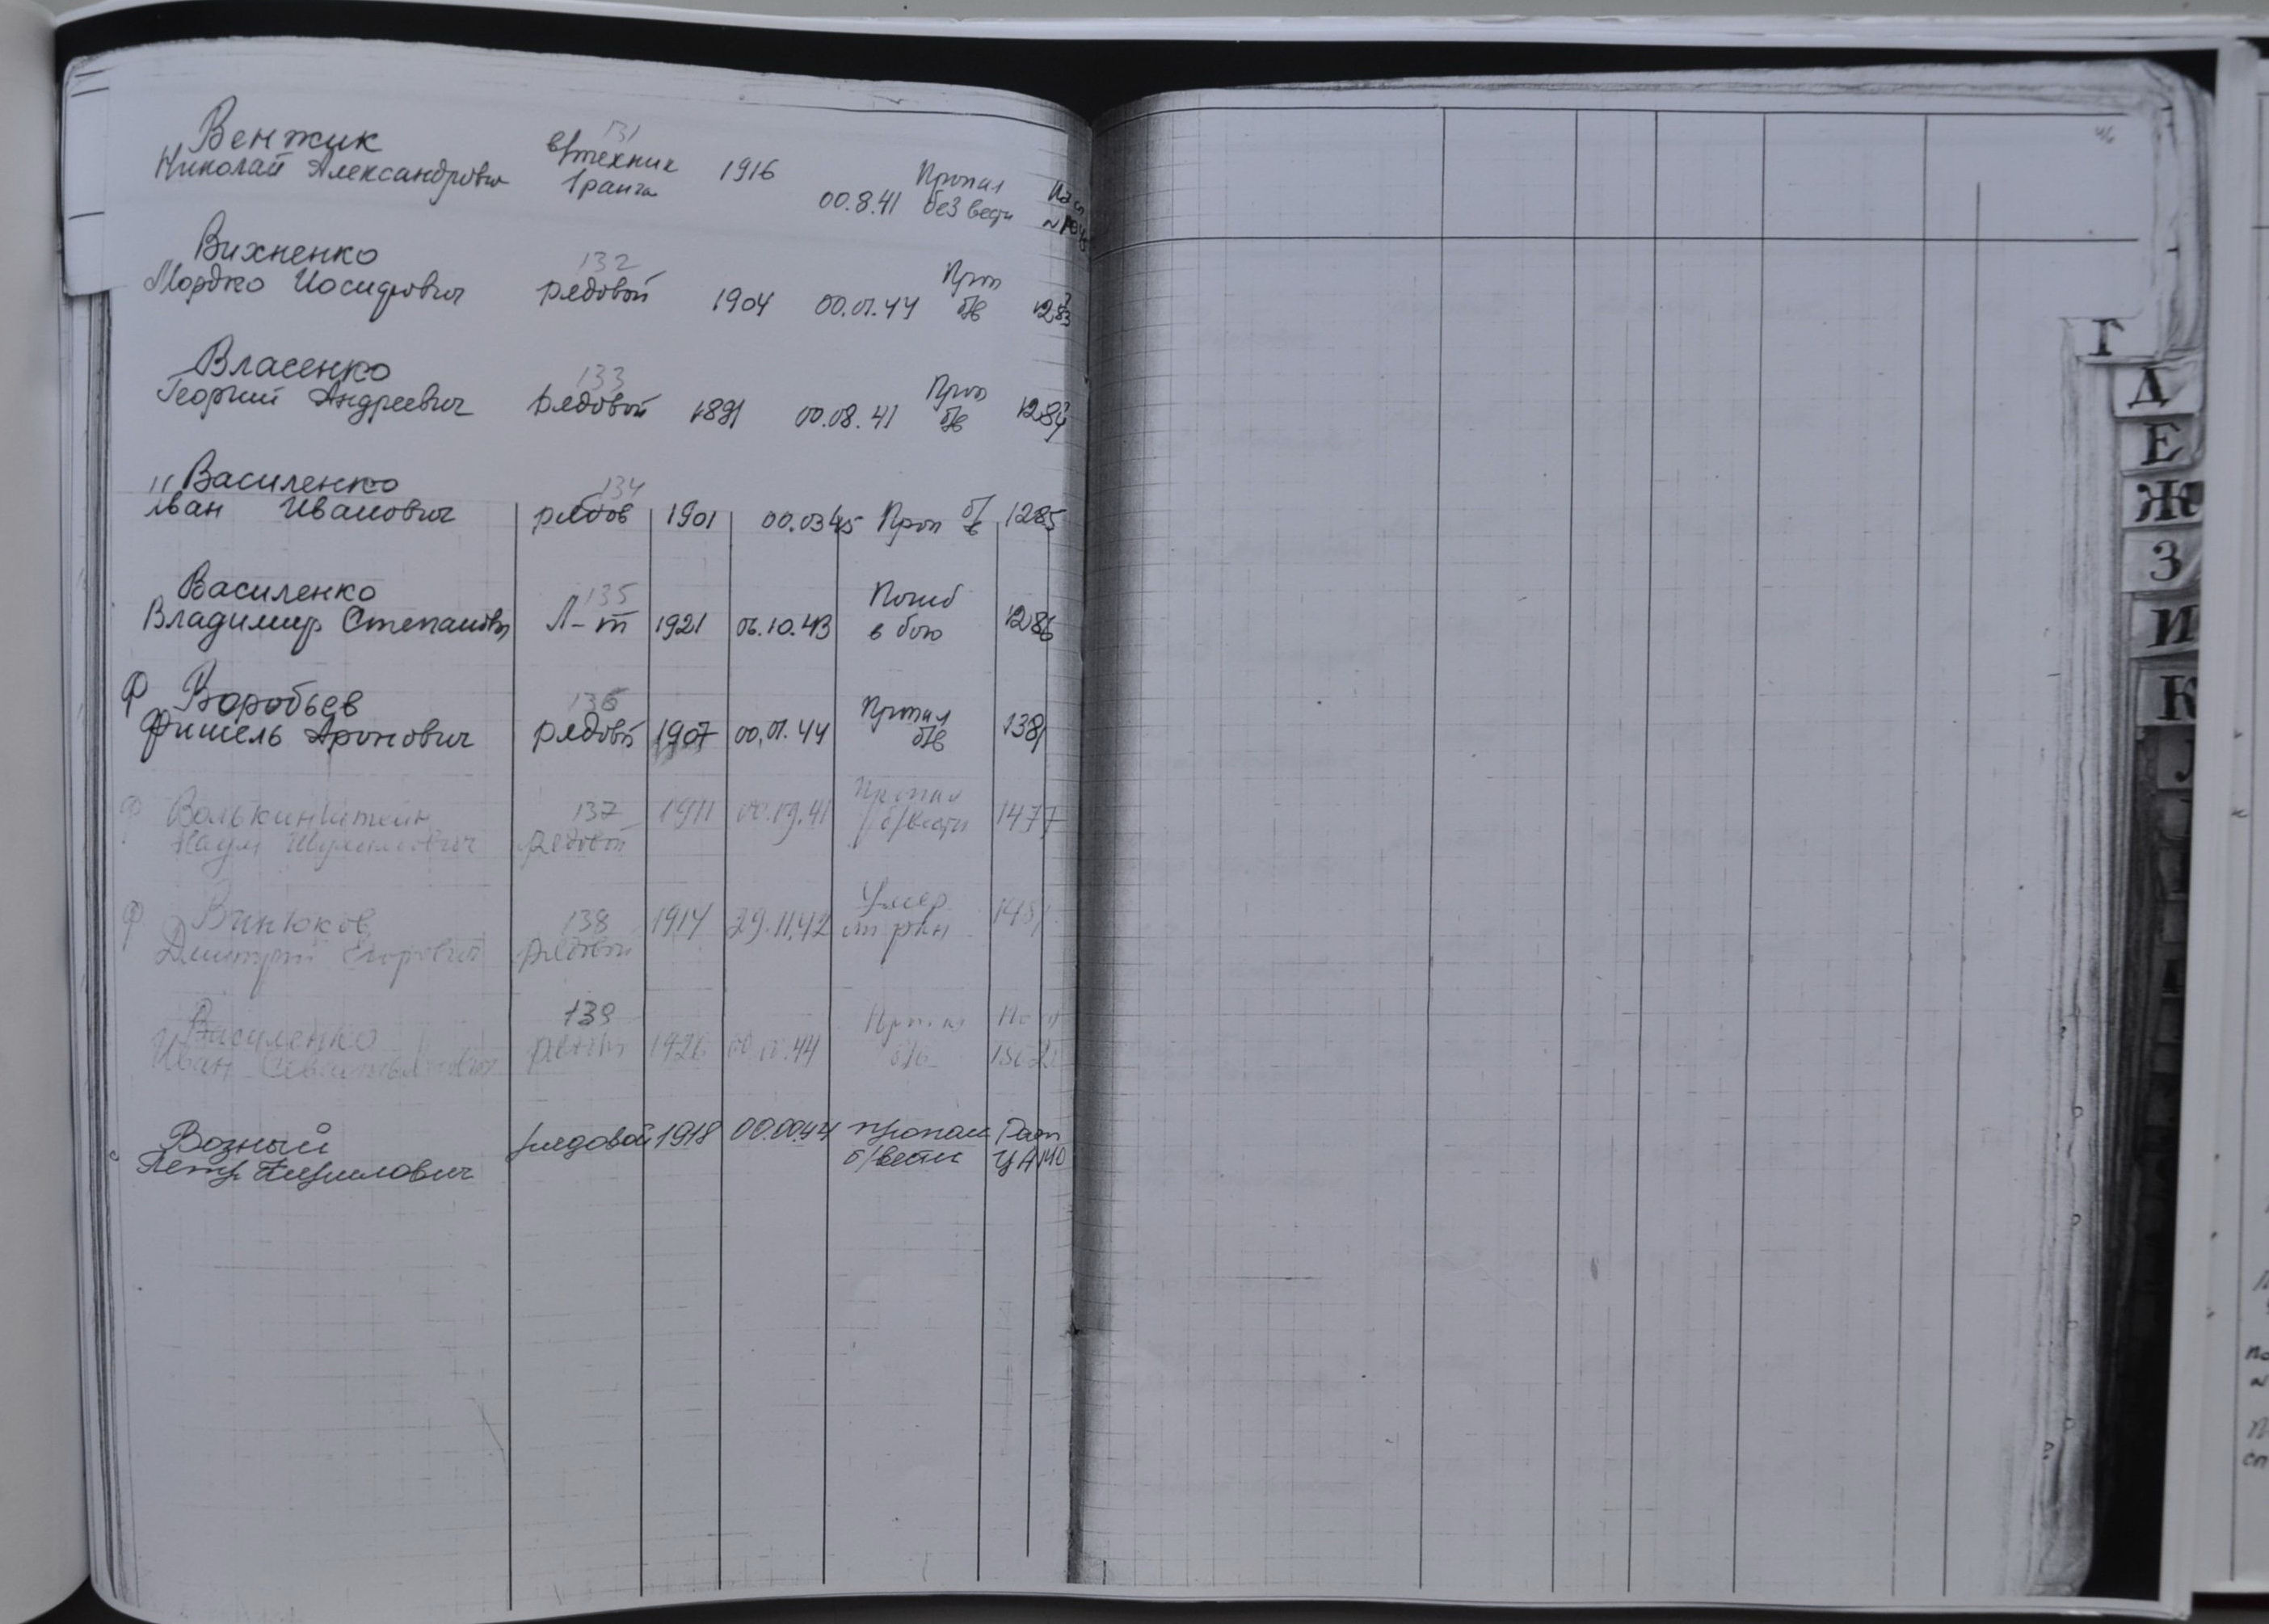 131
Венжик в/техник 1916 Пропал
Николай Александрович 1 ранга 00.8.41 без вести
Вихненко 132 Проп
Мордко Иосифович рядовой 1904 00.01.44 б/в 1283
Власенко 133 Проп
Георгий Андреевич рядовой 1891 00.08.41 б/в 1284
Василенко 134
Иван Иванович рядов 1901 00.03.45 Проп б/в 1285
Василенко 135 Погиб
Владимир Степанович Л-т 1921 06.10.43 в бою 1286
Ф Воробьев 136 Пропал
Фишель Аронович рядовй 1907 00.01.44 б/в 1381
Ф Волькинштейн 137 1911 00.09.41 Пропал 1477
Наум рядовой б/вести
Ф Винюков 138 1914 29.11.42 Умер
Дмитрий Егорович рядовой от ран
Василенко 139 Пропал
Иван 1926 б/в
Возный рядовой 1918 00.00.44 пропал
Петр б/вести ЦАМО
Г
Д
Е
Ж
З
И
К